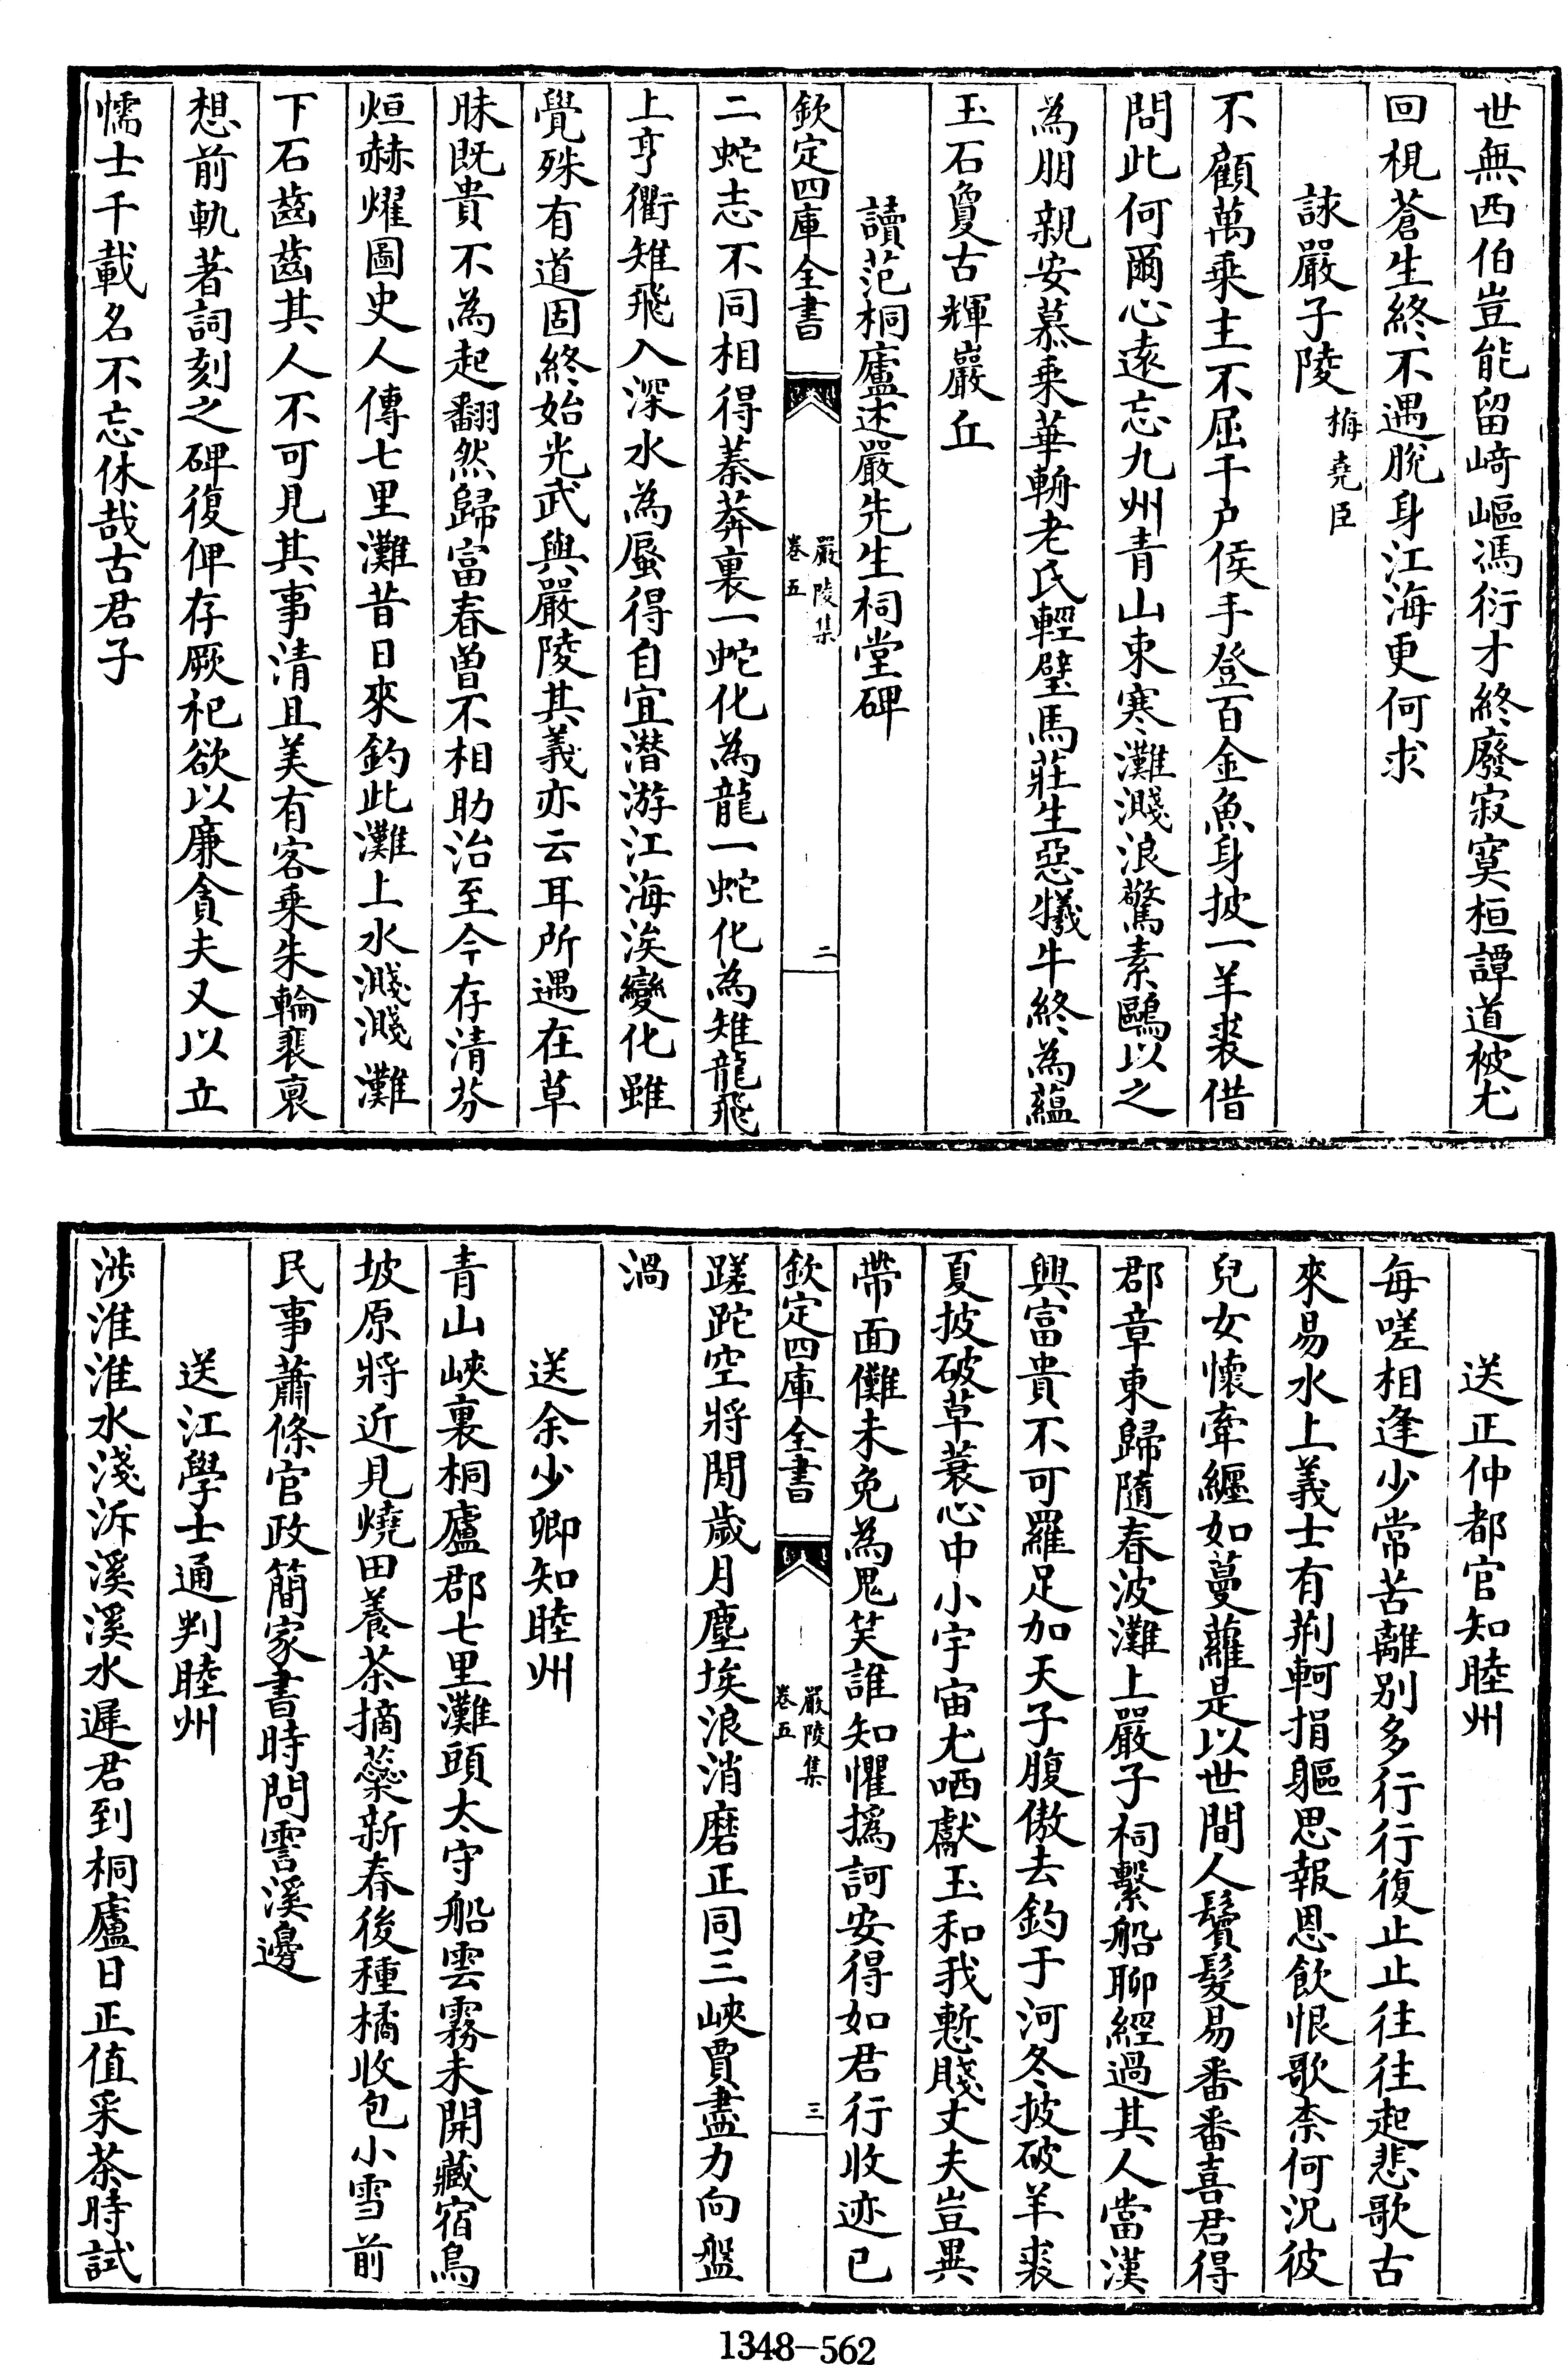 世無西伯豈能留﨑嶇馮衍才終廢寂寞桓譚道被尤
回梘蒼生終不遇脫身江海更何求
詠嚴子陵 梅堯臣
不顧萬乗主不屈千户侯手登百金魚身披一羊裘借
問此何爾心逺忘九州青山束寒灘濺浪驚素鷗以之
為朋親安慕乗華輈老氏輕璧馬莊生惡犧牛終為蘊
玉石敻古輝巖丘
讀范桐廬述嚴先生祠堂碑
欽定四庫全書
嚴陵集
卷五
二
二蛇志不同相得蓁莽裏一蛇化為龍一蛇化為雉龍飛
上亨衢雉飛入深水為蜃得自宜潛游江海涘變化雖
覺殊有道固終始光武與嚴陵其義亦云耳所遇在草
昧既貴不為起翻然歸富春曽不相助治至今存清芬
烜赫燿圖史人傳七里灘昔日來釣此灘上水濺濺灘
下石齒齒其人不可見其事清且美有客乗朱輪裴裏
想前軌著詞刻之碑復俾存厥祀欲以廉貪夫又以立
懦士千載名不忘休哉古君子
送正仲都官知睦州
每嗟相逢少常苦離别多行行復止止往往起悲歌古
來易水上義士有荆軻捐軀思報恩飲恨歌柰何況彼
兒女懷牽纒如蔓蘿是以世間人鬢髮易番番喜君得
郡章東歸隨春波灘上嚴子祠繫船聊經過其人當漢
興富貴不可羅足加天子腹傲去釣于河冬披破羊裘
夏披破草蓑心中小宇宙尤哂獻玉和我慙賤丈夫豈異
帶面儺未免為鬼笑誰知懼撝訶安得如君行收迹已
欽定四庫全書
嚴陵集
卷五
三
蹉跎空將閒歲月塵埃浪消磨正同三峽賈盡力向盤
渦
送余少卿知睦州
青山峽裏桐廬郡七里灘頭太守船雲霧未開藏宿鳥
坡原將近見燒田養茶摘蘂新春後種橘收包小雪前
民事蕭條官政簡家書時問霅溪邊
送江學士通判睦州
渉淮淮水淺泝溪溪水遲君到桐廬日正值采茶時試
1348-562